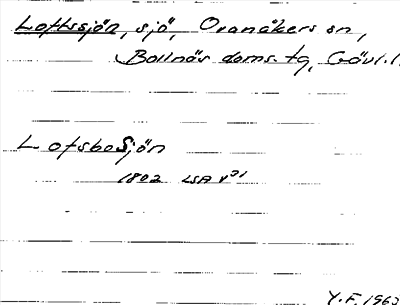 Loftssjön, sjö, Ovanåkers sn,
Bollnäs doms. tg, Gävl. l
Lofsbo Sjön
1802 LSA V31
Y.F. 1963